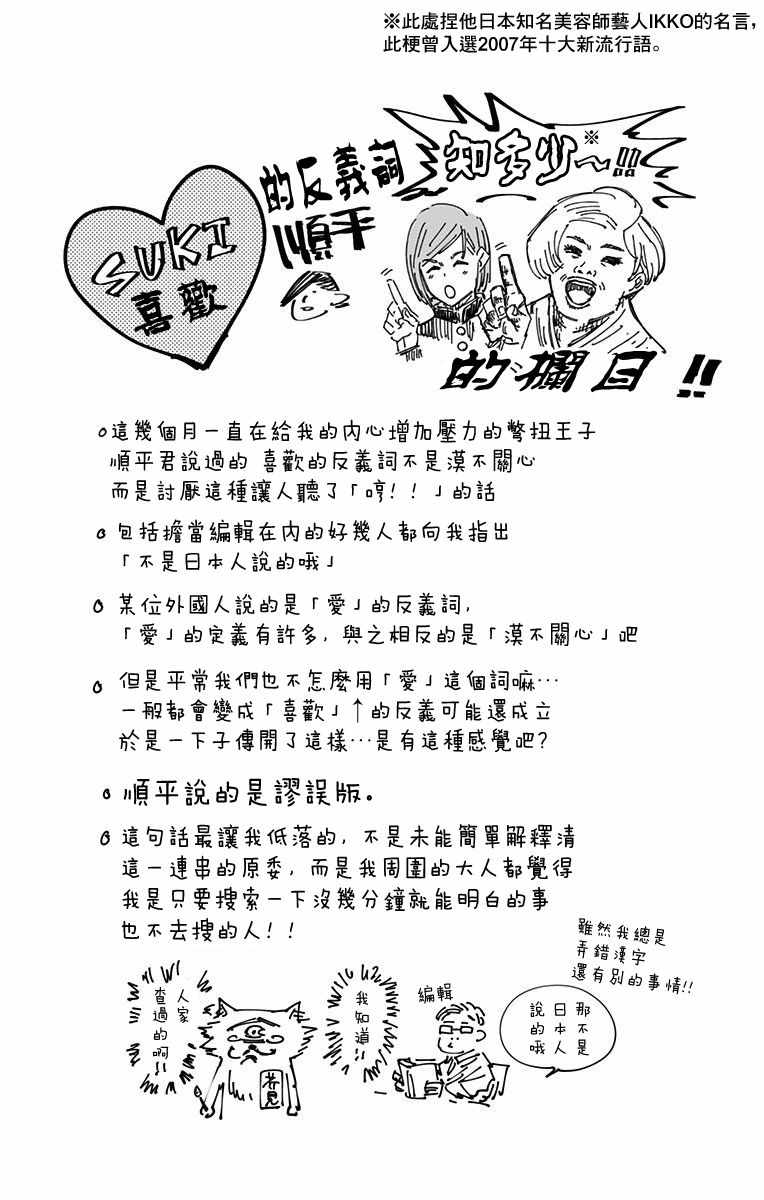 ※此處捏他日本知名美容師藝人IKKO的名言，
此梗曾入選2007年十大新流行語。
SUKI
喜歡
的反義詞
知多少～!!!
※
順平
的欄目!!
這幾個月一直在給我的內心增加壓力的彆扭王子
順平君說過的 喜歡的反義詞不是漠不關心
而是討厭這種讓人聽了「哼！！」的話
包括擔當編輯在內的好幾人都向我指出
「不是日本人說的哦」
某位外國人說的是「愛」的反義詞，
「愛」的定義有許多，與之相反的是「漠不關心」吧
但是平常我們也不怎麼用「愛」這個詞嘛…
一般都會變成「喜歡」↑的反義可能還成立
於是一下子傳開了這樣…是有這種感覺吧？
順平說的是謬誤版。
這句話最讓我低落的，不是未能簡單解釋清
這一連串的原委，而是我周圍的大人都覺得
我是只要搜索一下沒幾分鐘就能明白的事
也不去搜的人！！
雖然我總是
弄錯漢字
還有別的事情!!
人家
查過的啊!!
芥見
我知道!!
編輯
那不是
日本人
說的哦